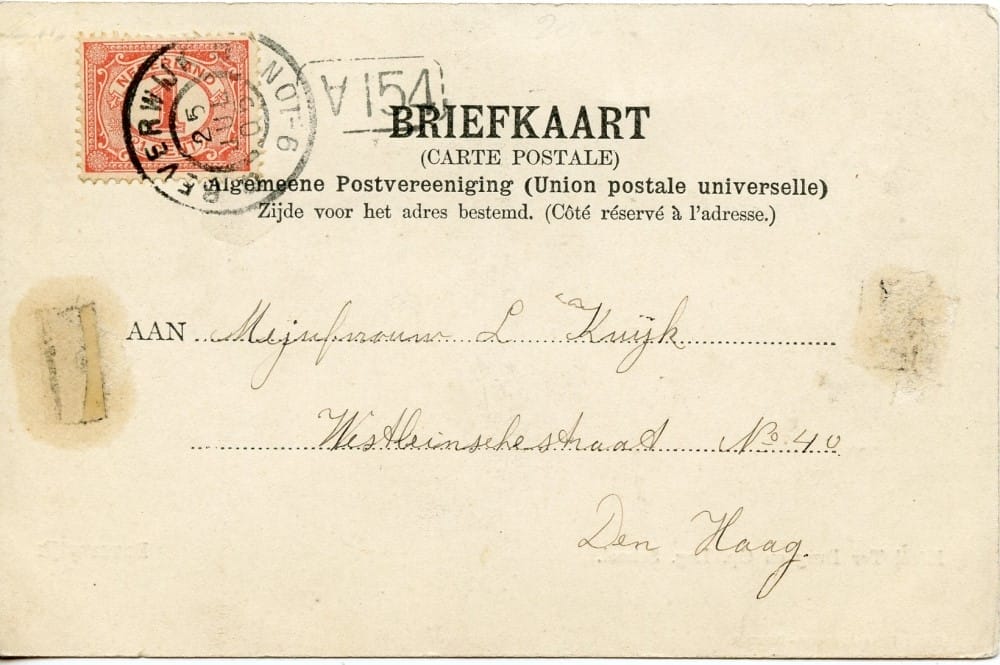 NEDERLAND
1
BEVERWIJK
A 154
BRIEFKAART
(CARTE POSTALE)
Algemeene Postvereeniging (Union postale universelle)
Zijde voor het adres bestemd. (Côté réservé à l'adresse.)
AAN Mejufrouw L Kuijk
Westleinschestraat No 40
Den Haag.